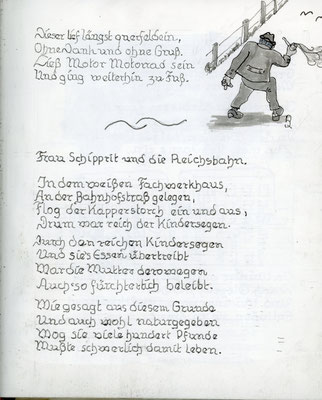 Dieser lief längst querfeldein,
Ohne Dank und ohne Gruß.
Ließ Motor Motorrad sein
Und ging weiterhin zu Fuß.
Frau Schipprit und die Reichsbahn.
In dem weißen Fachwerkhaus,
An der Bahnhofstraß gelegen,
Flog der Kapperstorch ein und aus,
Drum war reich der Kindersegen.
Durch den reichen Kindersegen
Und sie's Essen übertreibt
War die Mutter derowegen
Auch so fürchterlich beleibt.
Wie gesagt aus diesem Grunde
Und auch wohl naturgegeben
Wog sie viele hundert Pfunde
Mußte schwerlich damit leben.